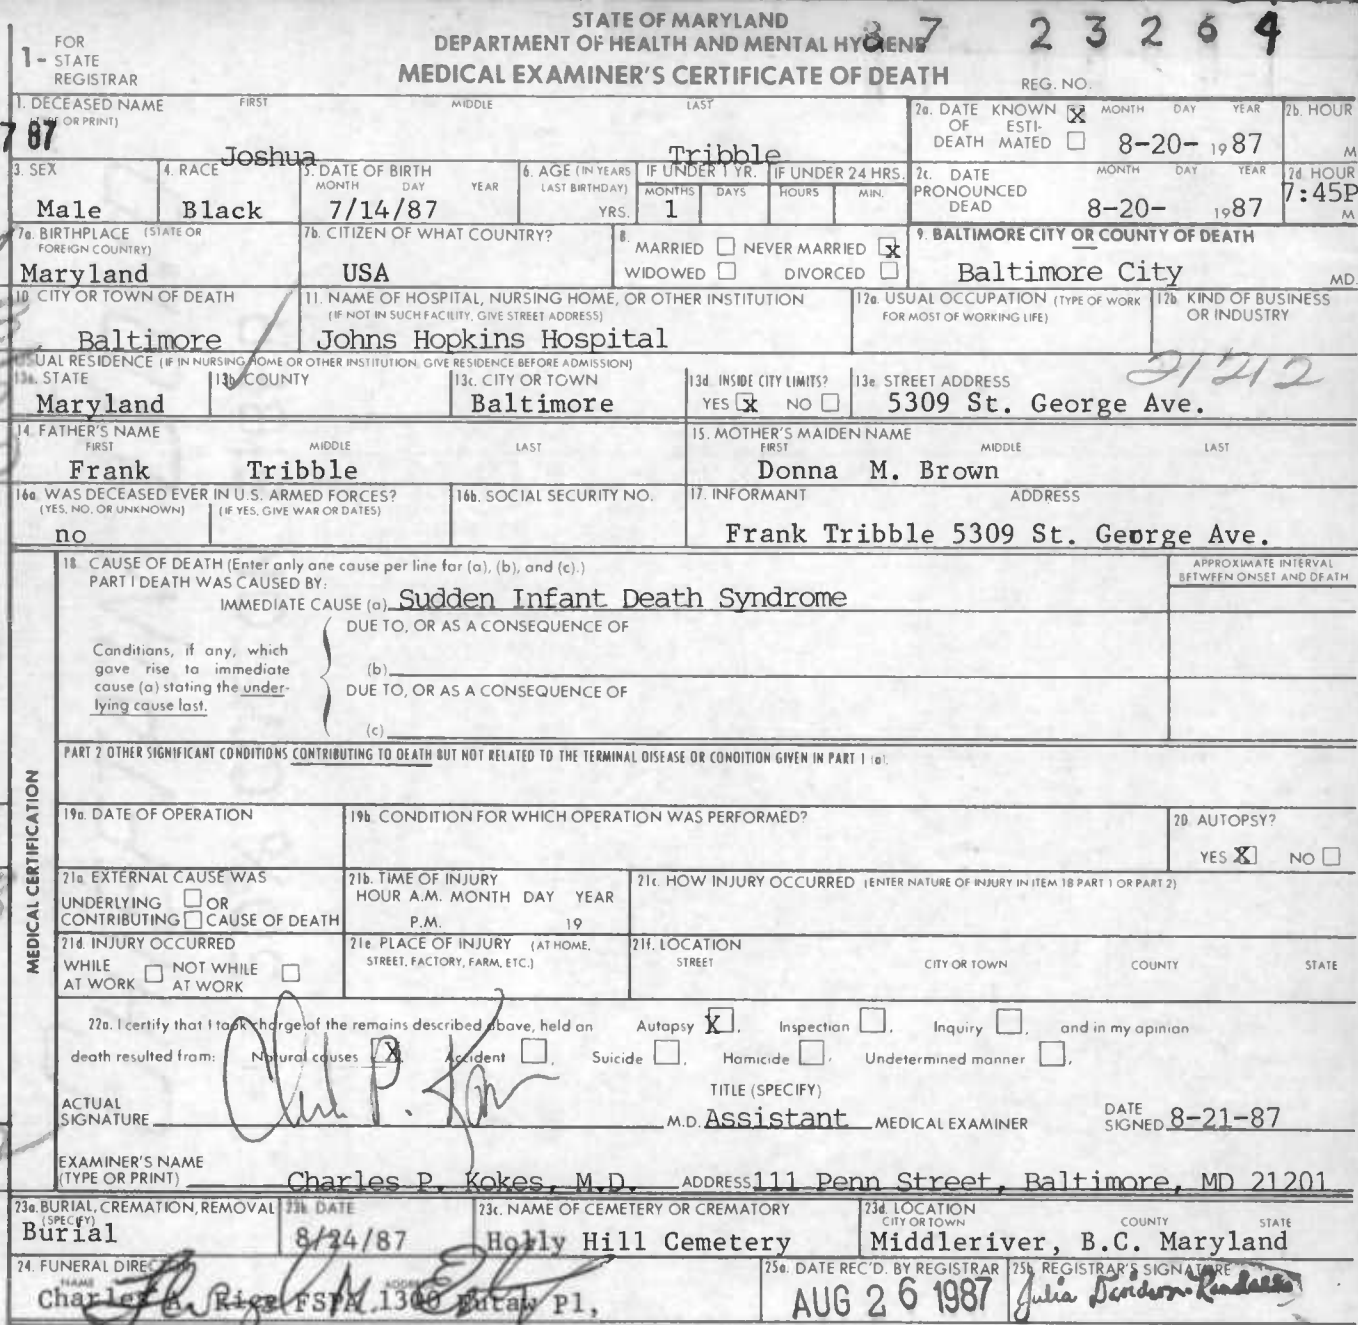 STATE OF MARYLAND
DEPARTMENT OF HEALTH AND MENTAL HYGIENE
MEDICAL EXAMINER'S CERTIFICATE OF DEATH
87 23264
REG. NO.
1- FOR STATE REGISTRAR
1. DECEASED NAME FIRST MIDDLE LAST
(TYPE OR PRINT)
7 87
Joshua Tribble
2a. DATE OF DEATH KNOWN X ESTIMATED MONTH DAY YEAR
8-20- 1987
2b. HOUR
M
3. SEX
Male
4. RACE
Black
5. DATE OF BIRTH
MONTH DAY YEAR
7/14/87
6. AGE (IN YEARS LAST BIRTHDAY)
YRS.
IF UNDER 1 YR. IF UNDER 24 HRS.
MONTHS DAYS HOURS MIN.
1
2c. DATE PRONOUNCED DEAD MONTH DAY YEAR
8-20- 1987
2d HOUR
7:45P
M
7a. BIRTHPLACE (STATE OR FOREIGN COUNTRY)
Maryland
7b. CITIZEN OF WHAT COUNTRY?
USA
8. MARRIED NEVER MARRIED X
WIDOWED DIVORCED
9. BALTIMORE CITY OR COUNTY OF DEATH
Baltimore City
MD.
10. CITY OR TOWN OF DEATH
Baltimore
11. NAME OF HOSPITAL, NURSING HOME, OR OTHER INSTITUTION
(IF NOT IN SUCH FACILITY, GIVE STREET ADDRESS)
Johns Hopkins Hospital
12a. USUAL OCCUPATION (TYPE OF WORK FOR MOST OF WORKING LIFE)
12b. KIND OF BUSINESS OR INDUSTRY
USUAL RESIDENCE (IF IN NURSING HOME OR OTHER INSTITUTION, GIVE RESIDENCE BEFORE ADMISSION)
13a. STATE
Maryland
13b. COUNTY
13c. CITY OR TOWN
Baltimore
13d INSIDE CITY LIMITS?
YES X NO
13e STREET ADDRESS
21212
5309 St. George Ave.
14. FATHER'S NAME
FIRST MIDDLE LAST
Frank Tribble
15. MOTHER'S MAIDEN NAME
FIRST MIDDLE LAST
Donna M. Brown
16a. WAS DECEASED EVER IN U.S. ARMED FORCES?
(YES, NO, OR UNKNOWN) (IF YES, GIVE WAR OR DATES)
no
16b. SOCIAL SECURITY NO.
17. INFORMANT ADDRESS
Frank Tribble 5309 St. George Ave.
18. CAUSE OF DEATH (Enter only one cause per line for (a), (b), and (c).)
PART I DEATH WAS CAUSED BY:
APPROXIMATE INTERVAL BETWEEN ONSET AND DEATH
IMMEDIATE CAUSE (a) Sudden Infant Death Syndrome
DUE TO, OR AS A CONSEQUENCE OF
Conditions, if any, which
gave rise to immediate
cause (a) stating the under-
lying cause last.
(b)
DUE TO, OR AS A CONSEQUENCE OF
(c)
PART 2 OTHER SIGNIFICANT CONDITIONS CONTRIBUTING TO DEATH BUT NOT RELATED TO THE TERMINAL DISEASE OR CONDITION GIVEN IN PART 1 (a).
MEDICAL CERTIFICATION
19a. DATE OF OPERATION
19b. CONDITION FOR WHICH OPERATION WAS PERFORMED?
20 AUTOPSY?
YES X NO
21a EXTERNAL CAUSE WAS
UNDERLYING OR
CONTRIBUTING CAUSE OF DEATH
21b. TIME OF INJURY
HOUR A.M. MONTH DAY YEAR
P.M. 19
21c. HOW INJURY OCCURRED (ENTER NATURE OF INJURY IN ITEM 18 PART 1 OR PART 2)
21d. INJURY OCCURRED
WHILE AT WORK NOT WHILE AT WORK
21e PLACE OF INJURY (AT HOME, STREET, FACTORY, FARM, ETC.)
21f. LOCATION
STREET CITY OR TOWN COUNTY STATE
22a. I certify that I took charge of the remains described above, held an Autopsy X, Inspection, Inquiry, and in my opinion
death resulted from: Natural causes X Accident, Suicide, Homicide, Undetermined manner,
TITLE (SPECIFY)
ACTUAL SIGNATURE Charles P. Kokes M.D. Assistant MEDICAL EXAMINER DATE SIGNED 8-21-87
EXAMINER'S NAME (TYPE OR PRINT) Charles P. Kokes, M.D. ADDRESS 111 Penn Street, Baltimore, MD 21201
23a. BURIAL, CREMATION, REMOVAL (SPECIFY)
Burial
23b. DATE
8/24/87
23c. NAME OF CEMETERY OR CREMATORY
Holly Hill Cemetery
23d. LOCATION
CITY OR TOWN COUNTY STATE
Middleriver, B.C. Maryland
24. FUNERAL DIRECTOR
NAME ADDRESS
Charles A. Rice FSPA 1300 Eutaw Pl,
25a. DATE REC'D. BY REGISTRAR
AUG 26 1987
25b. REGISTRAR'S SIGNATURE
Julia Davidson-Randall